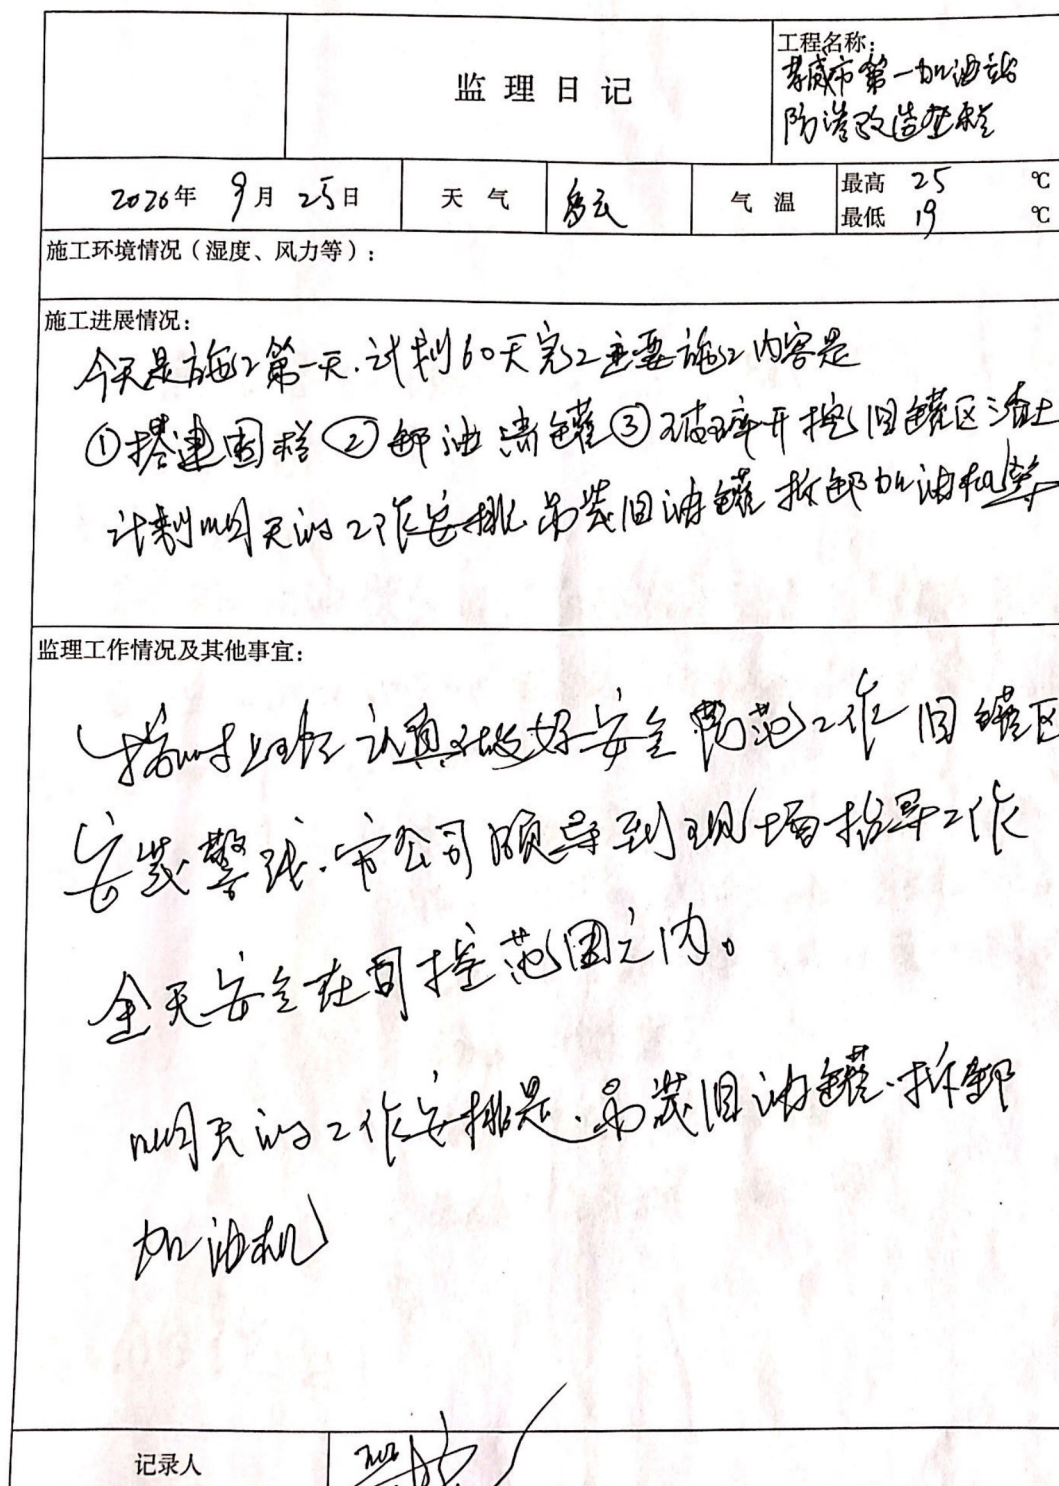 监理日记
工程名称:
市第一加油站
防渗改造工程
2020年 9月 25日 天气 多云 气温 最高 25 ℃
最低 19 ℃
施工环境情况(湿度、风力等):
施工进展情况:
今天是施工第一天.计划60天完工主要施工内容是
①搭建围栏②卸油清罐③破碎开挖旧罐区渣土
计划明天的工作安排.吊装旧油罐拆卸加油机等
监理工作情况及其他事宜:
按时上班认真做好安全防范工作旧罐区
安装警线.市公司领导到现场指导工作
全天安全在可控范围之内。
明天的工作安排是.吊装旧油罐.拆卸
加油机
记录人